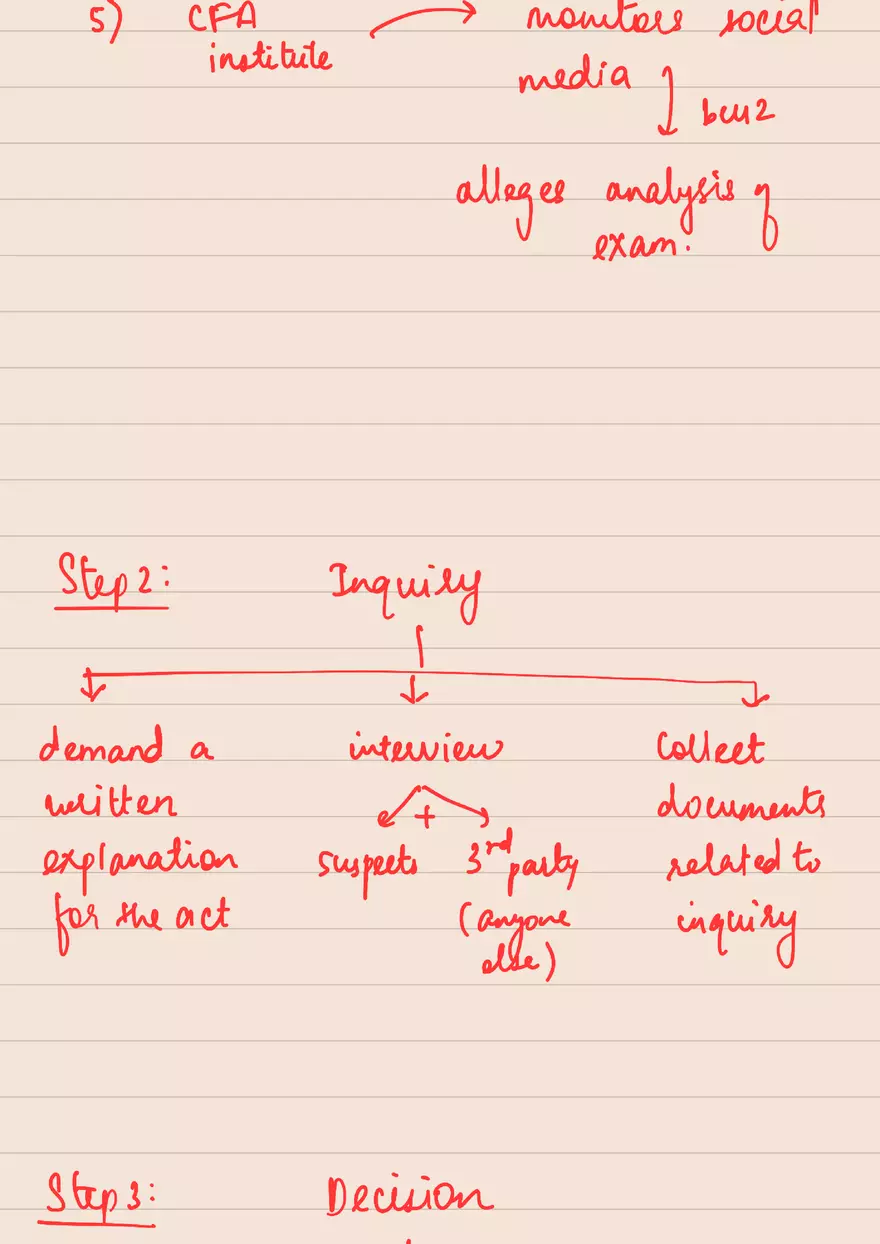 5) CFA institute → monitors social
media
↓ bcuz
alleges analysis of
exam.
Step 2: Inquiry
demand a written explanation for the act
interview
suspects + 3rd party (anyone else)
Collect documents related to inquiry
Step 3: Decision